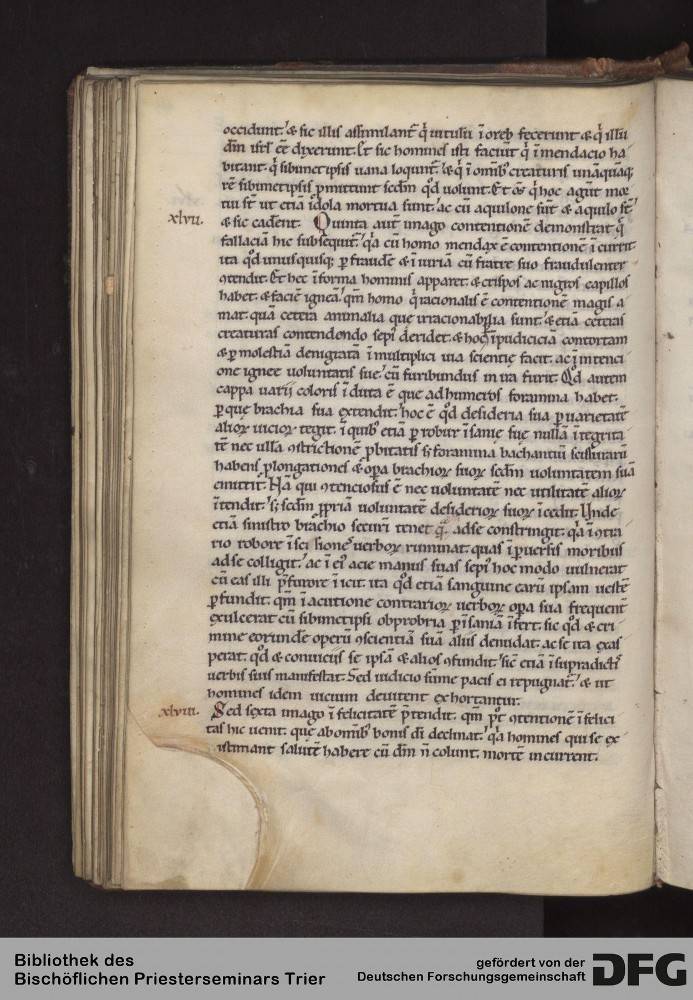 occidunt. & sic illis assimilant᷑ q̇ uitulū ī oreb fecerunt & q̇ illū
dm̄ isrl̄ eē dixerunt. Et sic homines isti faciūt q̇ ī mendacio ha
bitant. q̇ sibimetipsis uana loquunt᷑. & q̇ ī om̄ib; creaturis unāquāq;
rē sibimetipsis ꝓmittunt scdm̄ qd̓ uolunt. Et os̄ q̇ hoc agūt mor
tui st̄ ut etiā idola mortua sunt. ac cū aquilone sūt & aquilo st̄.
xlvii.
& sic cadent. Quinta aut̄ imago contentionē demonstrat q̄
fallaciā hic subsequit᷑. qa cū homo mendax ē contentionē īcurrit.
ita qd̓ unusquisq; ꝑ fraudē & īiuriā cū fratre suo fraudulenter
ꝯtendit. Et hec ī forma hominis apparet. & crispos ac nigros capillos
habet. & faciē igneā. qm̄ homo q̇ racionalis ē contentionē magis a
mat. quā cetera animalia que irracionabilia sunt. & etiā ceteras
creaturas contendendo sepi᷑ deridet. & hoc īpudiciciā contortam
& ꝑ molestiā denigratā ī multiplici uia scientie facit. ac ī intenci
one ignee uoluntatis sue. cū furibundus in ira furit. Qd̓ autem
cappa uarii coloris īduta ē que ad humeros foramina habet.
ꝑ que brachia sua extendit. hoc ē qd̓ desideria sua ꝑ uarietatē
alioꝝ uicioꝝ tegit. ī quib; etiā ꝑ robur īsanie sue nullā īntegrita
tē nec ullā ꝯstrictionē ꝓbitatis s; foramina bachantiū scissurarū
habens ꝓlongationes & opa brachioꝝ suoꝝ scdm̄ uoluntatem suā
emittit. Nā qui ꝯtenciosus ē nec uoluntatē nec utilitatē alioꝝ
ītendit. s; scdm̄ ꝓpriā uoluntatē desiderioꝝ suoꝝ īcedit. Unde
etiā sinistro brachio securi tenet q̄ ad se constringit. qa ī ꝯtra
rio robore īcisionē uerboꝝ ruminat. quas ī ꝑuersis moribus
ad se colligit. ac ī ei᷒ acie manus suas sepi᷒ hoc modo uulnerat
cū eas illi p̄ furore īicit. ita qd̓ etiā sanguine earū ipsam uestē
ꝑfundit. qm̄ ī acutione contrarioꝝ uerboꝝ opa sua frequent᷑
exulcerat cū sibimetipsi obprobria ꝑ īsaniā īfert. sic qd̓ & cri
mine eorundē operū ꝯscientiā suā aliis denudat. ac se ita exas
perat. qd̓ & conuiciis se ipsā & alios ꝯfundit. sic̄ etiā ī supradict᷒
uerbis suis manifestat. Sed iudicio sūme pacis ei repugnat᷑. & ut
homines idem uicium deuitent exhortantur.
xlviii.
Sed sexta imago ī felicitatē p̄tendit. qm̄ p᷒t ꝯtentionē īfelici
tas hic uenit. que ab om̄ib; bonis dī declinat. qa homines qui se ex
istimant salutē habere cū dm̄ n̄ colunt. mortē incurrent.
Bibliothek des
Bischöflichen Priesterseminars Trier
gefördert von der
Deutschen Forschungsgemeinschaft
DFG